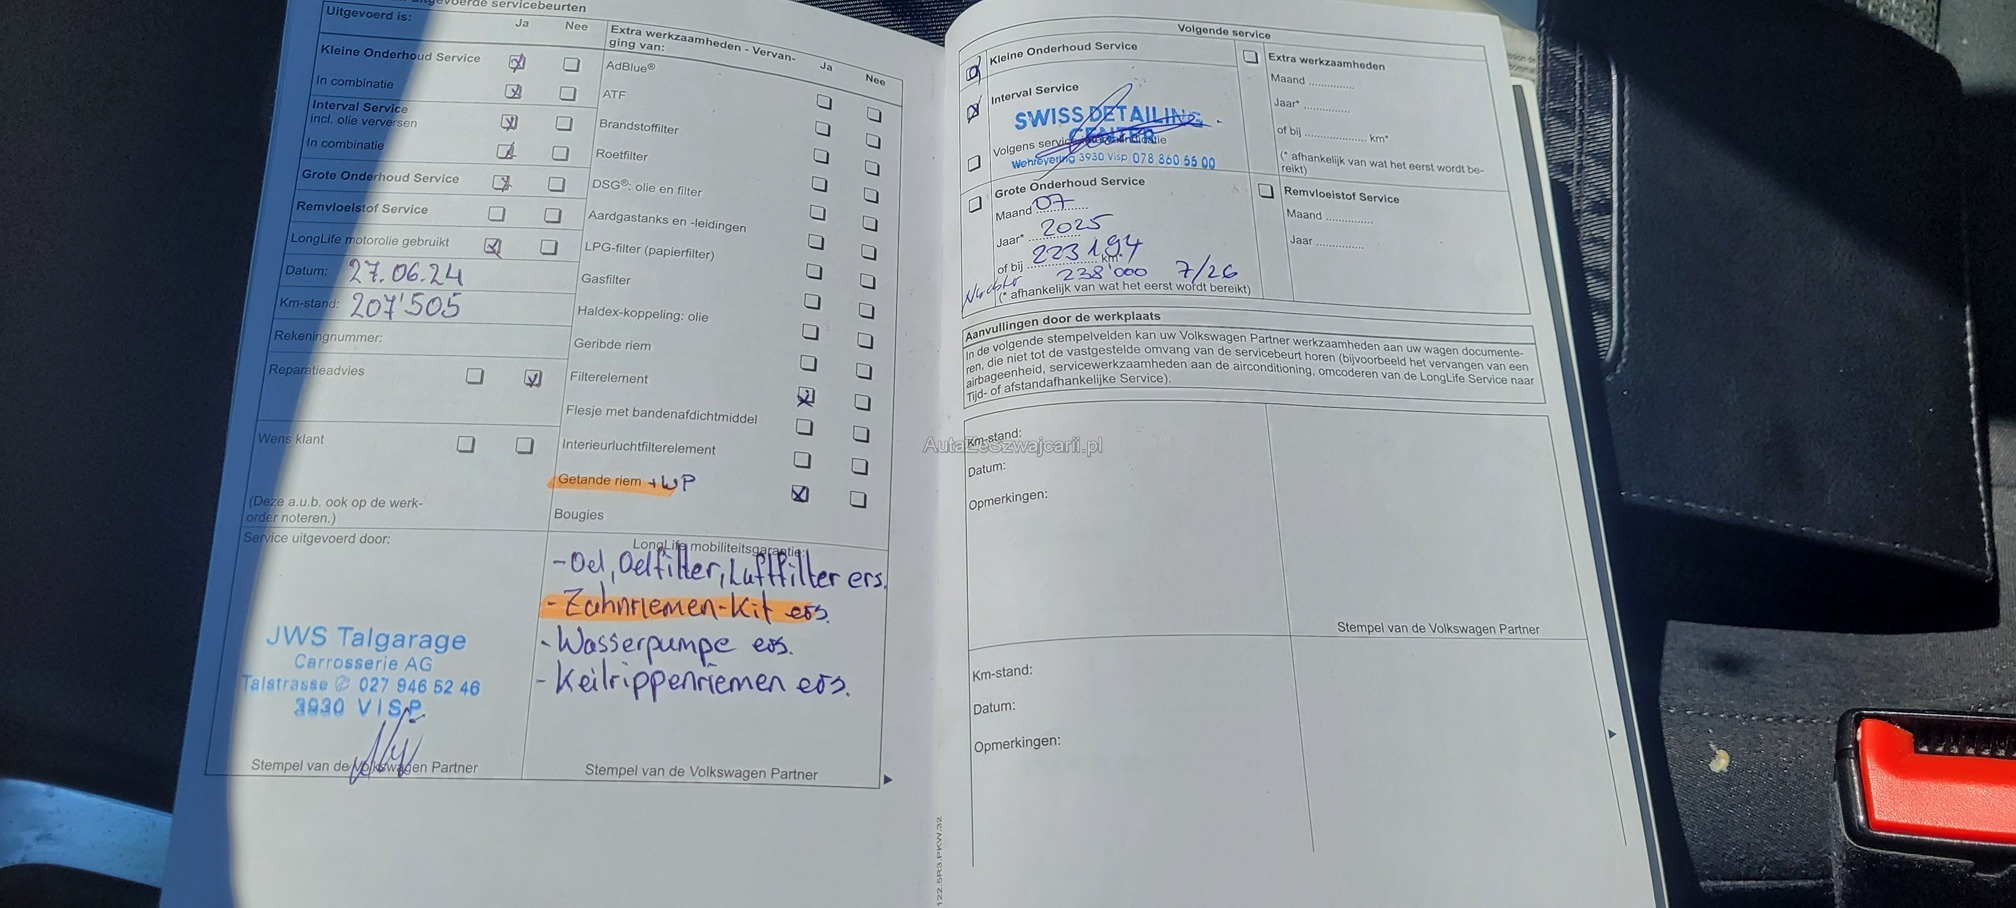 uitgevoerde servicebeurten
Uitgevoerd is:
Ja
Nee
Kleine Onderhoud Service
In combinatie
Interval Service
incl. olie verversen
In combinatie
Grote Onderhoud Service
Remvloeistof Service
LongLife motorolie gebruikt
Datum: 27.06.24
Km-stand: 207'505
Rekeningnummer:
Reparatieadvies
Wens klant
(Deze a.u.b. ook op de werk-
order noteren.)
Service uitgevoerd door:
JWS Talgarage
Carrosserie AG
Talstrasse 027 946 52 46
3930 VISP
Stempel van de Volkswagen Partner
Extra werkzaamheden - Vervan-
ging van:
Ja
Nee
AdBlue®
ATF
Brandstoffilter
Roetfilter
DSG®: olie en filter
Aardgastanks en -leidingen
LPG-filter (papierfilter)
Gasfilter
Haldex-koppeling: olie
Geribde riem
Filterelement
Flesje met bandenafdichtmiddel
Interieurluchtfilterelement
Getande riem +WP
Bougies
LongLife mobiliteitsgarantie:
-Oel, Oelfilter, Luftfilter ers.
-Zahnriemen-Kit ers.
-Wasserpumpe ers.
-Keilrippenriemen ers.
Stempel van de Volkswagen Partner
Volgende service
Kleine Onderhoud Service
Interval Service
SWISS DETAILING
CENTER
Volgens
Wehreyering 3930 Visp 078 860 55 00
Grote Onderhoud Service
Maand 07
Jaar* 2025
of bij 223194 km*
238'000 7/26
(* afhankelijk van wat het eerst wordt bereikt)
Extra werkzaamheden
Maand
Jaar*
of bij km*
(* afhankelijk van wat het eerst wordt be-
reikt)
Remvloeistof Service
Maand
Jaar
Aanvullingen door de werkplaats
In de volgende stempelvelden kan uw Volkswagen Partner werkzaamheden aan uw wagen documente-
ren, die niet tot de vastgestelde omvang van de servicebeurt horen (bijvoorbeeld het vervangen van een
airbageenheid, servicewerkzaamheden aan de airconditioning, omcoderen van de LongLife Service naar
Tijd- of afstandafhankelijke Service).
Km-stand:
AutaZeSzwajcarii.pl
Datum:
Opmerkingen:
Stempel van de Volkswagen Partner
Km-stand:
Datum:
Opmerkingen:
122.5R3.PKW.32